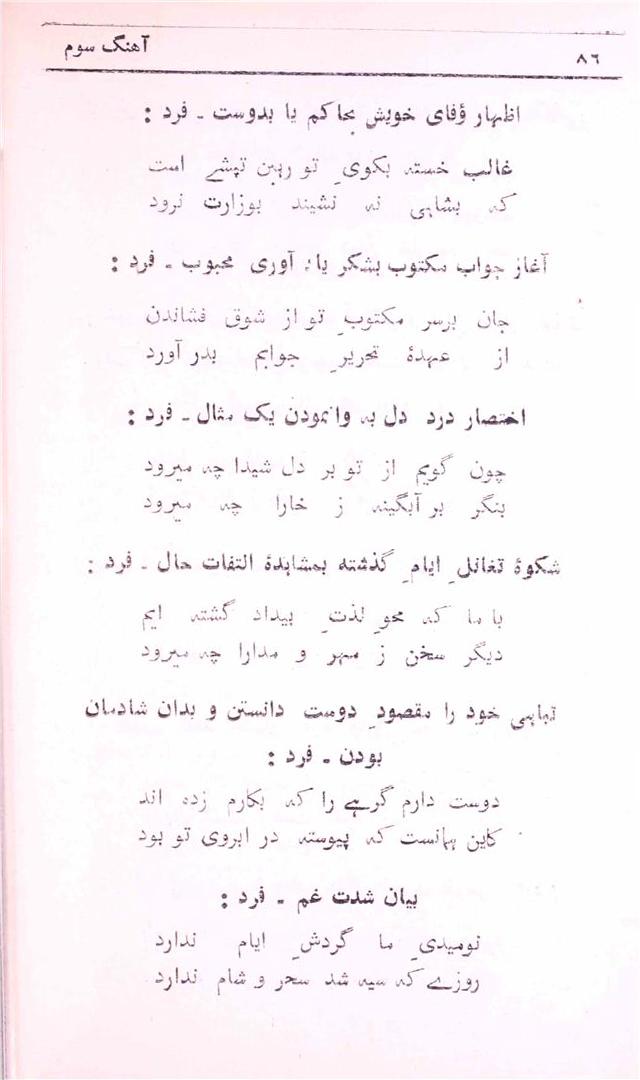 ۸۶ آهنگ سوم
اظهار وفای خویش بحاکم یا بدوست ـ فرد :
غالب خسته بکویِ تو رہین تپشے است
که بشاہی نه نشیند بوزارت نرود
آغاز جواب مکتوب بشکر یاد آوری محبوب ـ فرد :
جان برسر مکتوبِ تو از شوق فشاندن
از عہدۀ تحریرِ جوابم بدر آورد
اختصار درد دل به وانمودن یک مثال ـ فرد :
چون گویم از تو بر دل شیدا چه میرود
بنگر بر آبگینه ز خارا چه میرود
شکوۀ تغافلِ ایامِ گذشته بمشاہدۀ التفات حال ـ فرد :
با ما که محوِ لذتِ بیداد گشته ایم
دیگر سخن ز مہر و مدارا چه میرود
تباہی خود را مقصودِ دوست دانستن و بدان شادمان
بودن ـ فرد :
دوست دارم گرہے را که بکارم زده اند
کاین ہمانست که پیوسته در ابروی تو بود
بیان شدت غم ـ فرد :
نومیدیِ ما گردشِ ایام ندارد
روزے که سیه شد سحر و شام ندارد